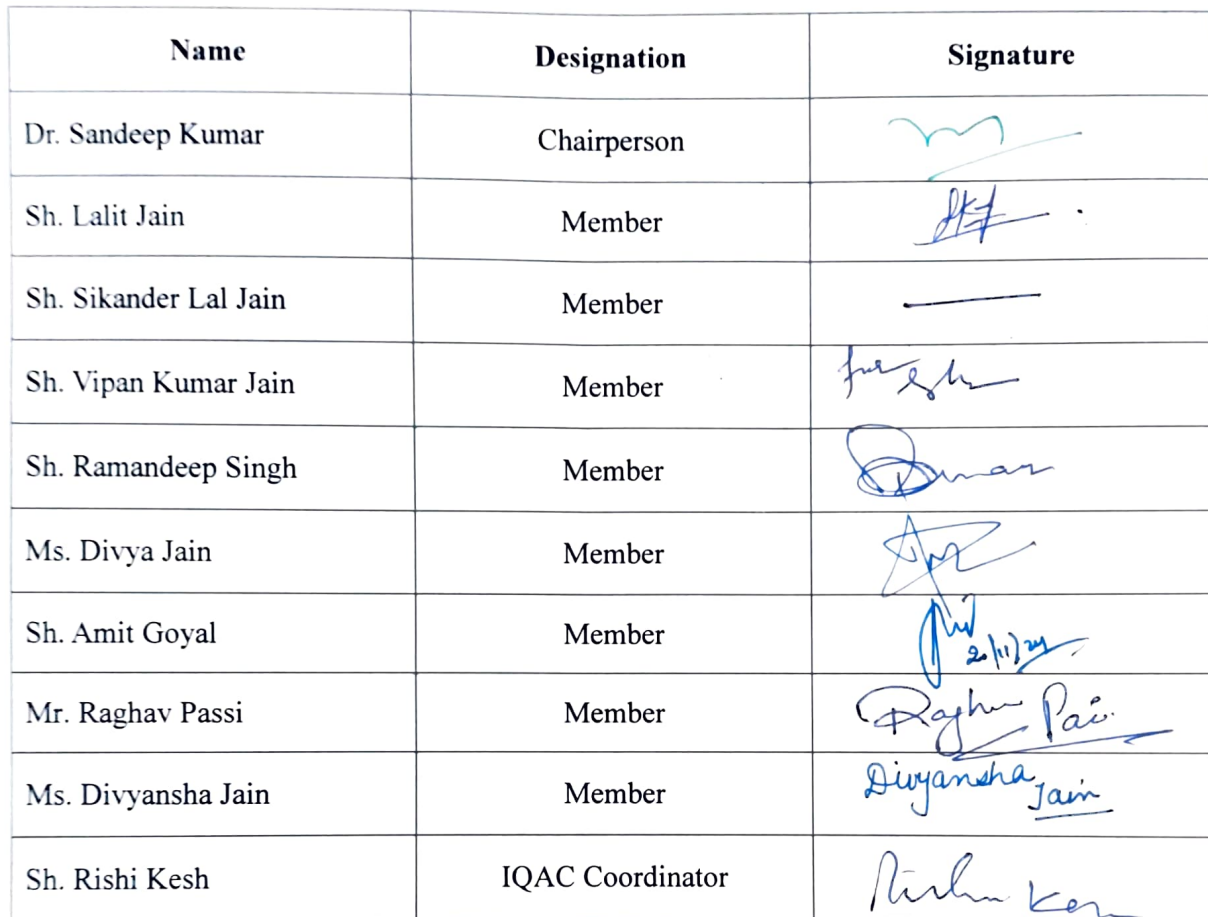 Name Designation Signature
Dr. Sandeep Kumar Chairperson
Sh. Lalit Jain Member
Sh. Sikander Lal Jain Member
Sh. Vipan Kumar Jain Member
Sh. Ramandeep Singh Member
Ms. Divya Jain Member
Sh. Amit Goyal Member
20/11/24
Mr. Raghav Passi Member
Ms. Divyansha Jain Member Divyansha
Jain
Sh. Rishi Kesh IQAC Coordinator